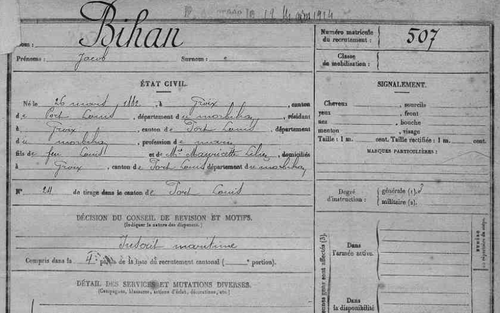 12 Mars 1914
Nom: Bihan
Numéro matricule du recrutement: 507
Prénoms: Jacob Surnoms:
Classe de mobilisation:
ÉTAT CIVIL.
SIGNALEMENT.
Né le 26 mars à Groix, canton
de Port Louis, département du morbihan, résidant
à Groix, canton de Port Louis, département
du morbihan, profession de marin,
fils de feu Louis et de domiciliés
à Groix, canton de Port Louis, département du morbihan
N° 24 de tirage dans le canton de Port Louis
Cheveux , sourcils
yeux , front
nez , bouche
menton , visage
Taille : 1 m. cent. Taille rectifiée : 1 m. cent.
MARQUES PARTICULIÈRES:
Degré d'instruction : générale (1).
militaire (2).
DÉCISION DU CONSEIL DE RÉVISION ET MOTIFS.
(Indiquer la nature des dispenses)
Inscrit maritime
Compris dans la partie de la liste du recrutement cantonal ( portion).
DÉTAIL DES SERVICES ET MUTATIONS DIVERSES.
(Campagnes, blessures, actions d'éclat, décorations, etc.)
Dans l'armée active.
Dans la disponibilité
NUMÉRO